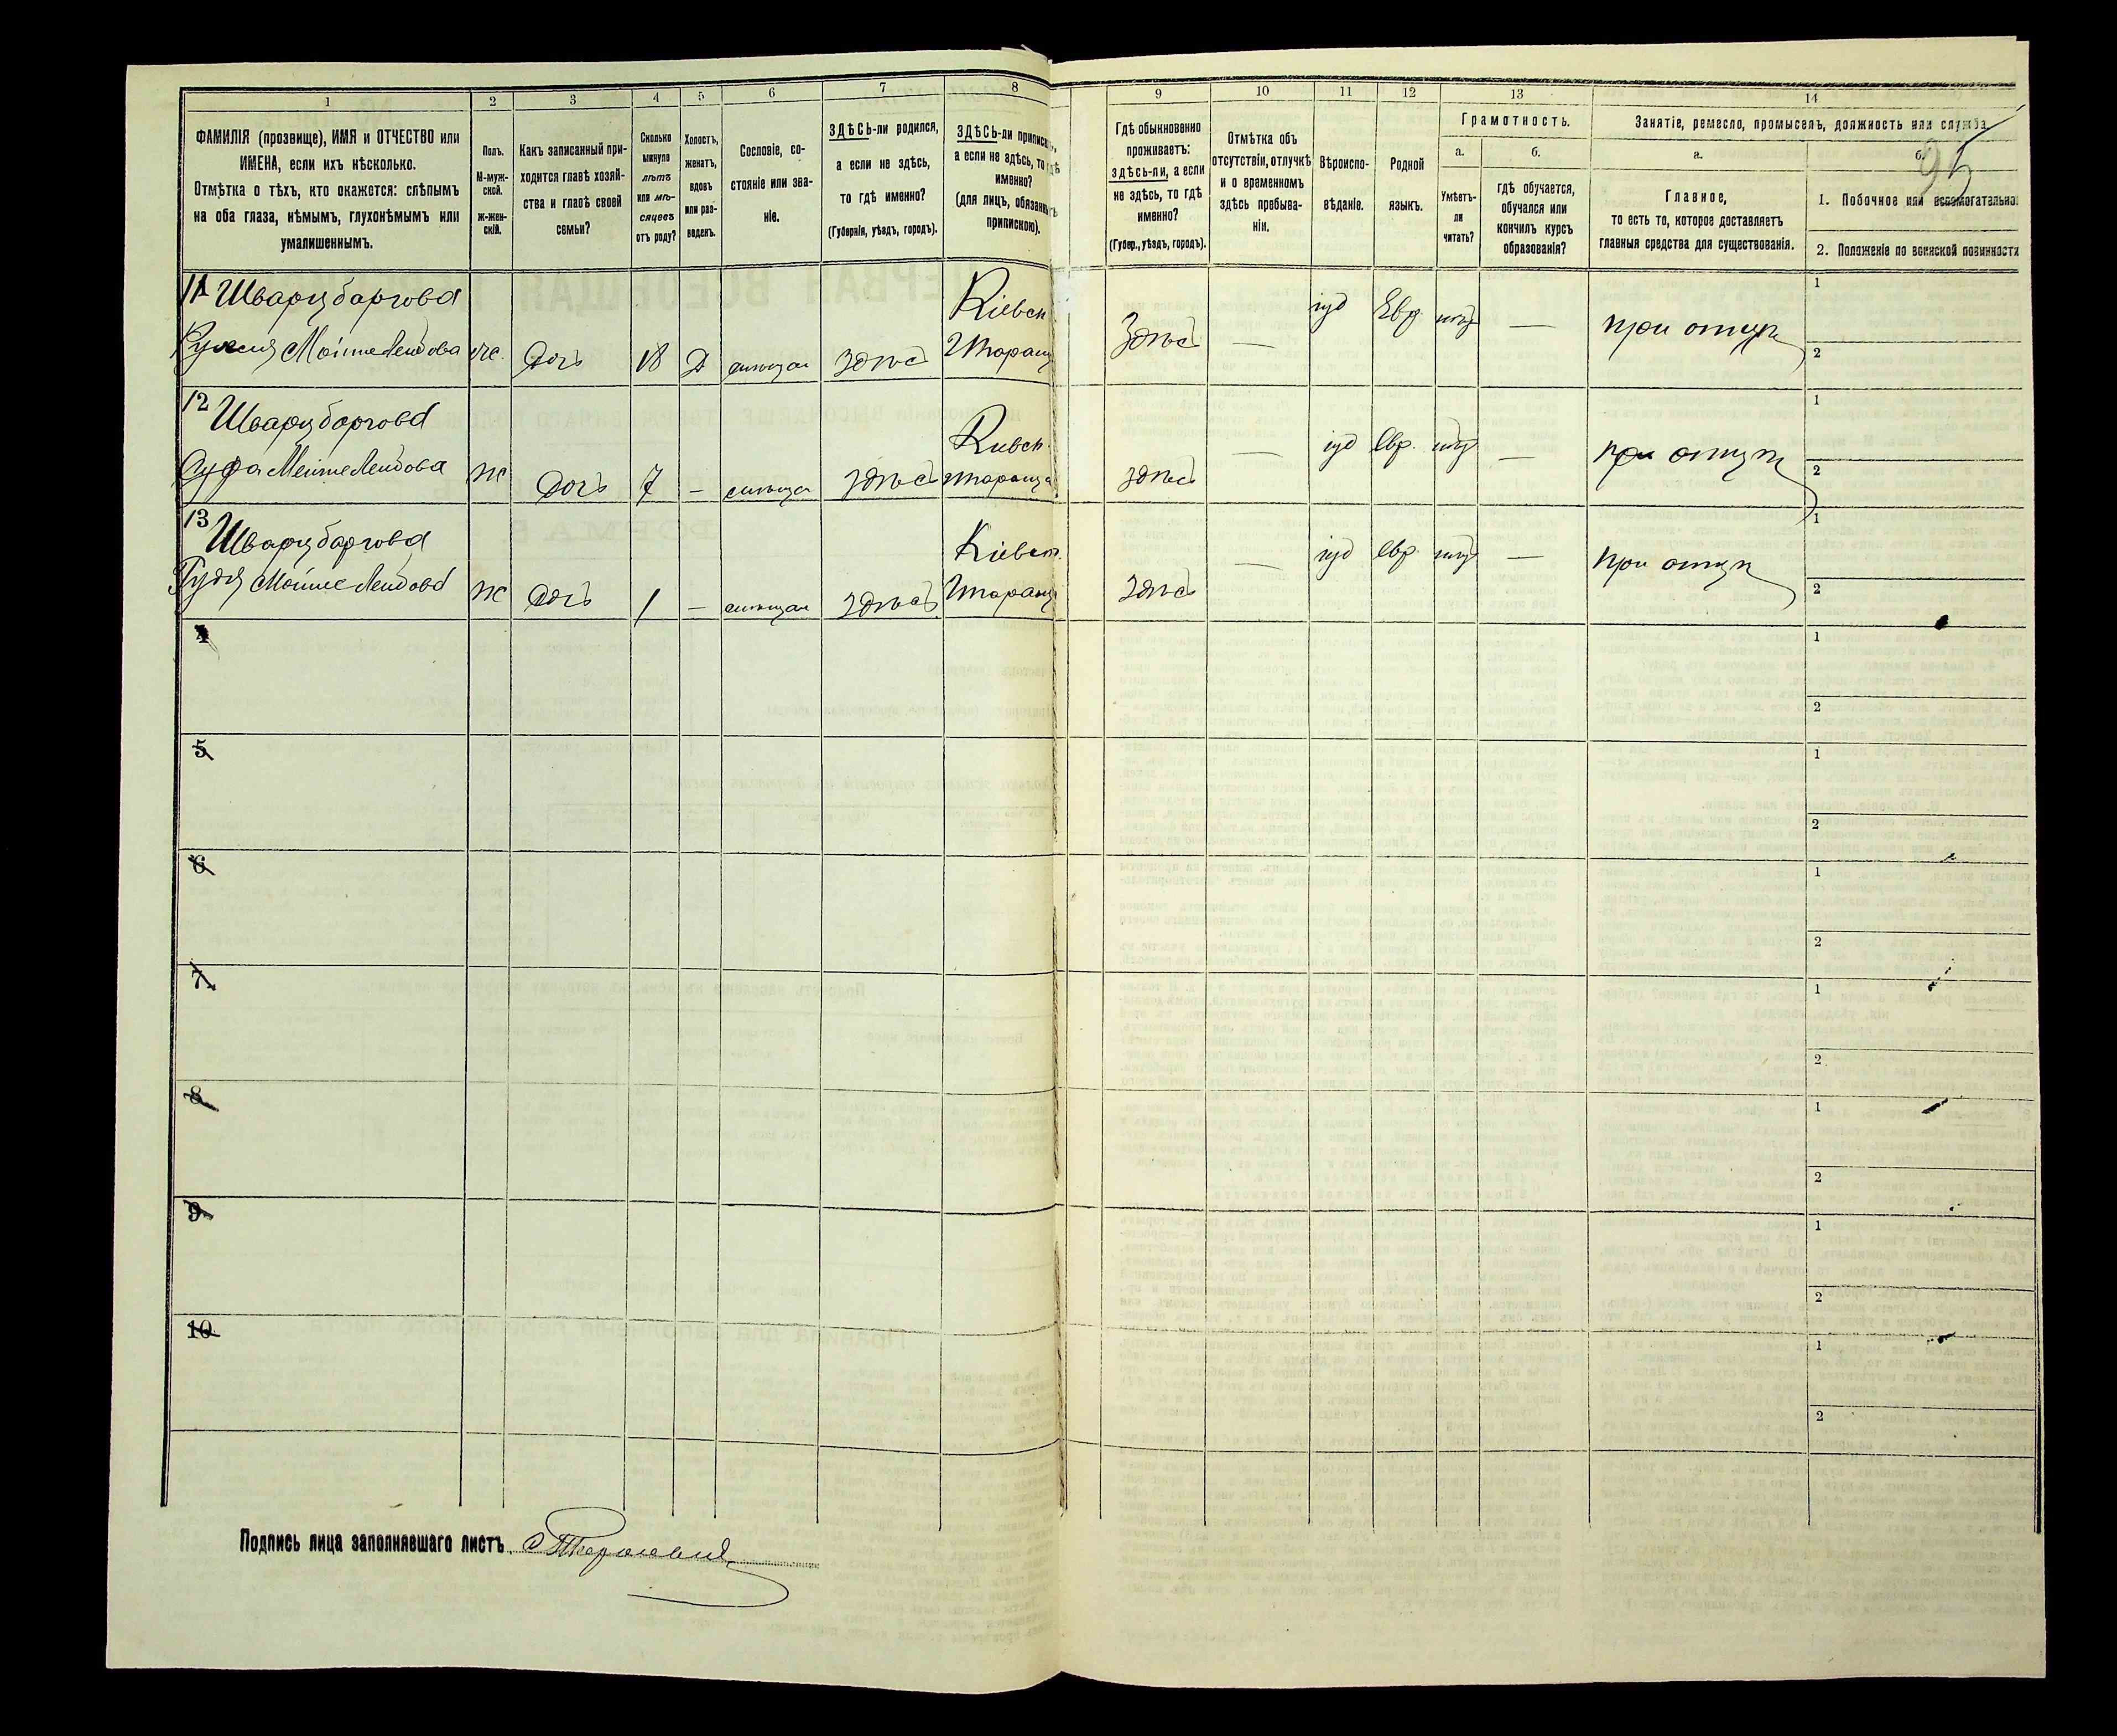 1 2 3 4 5 6 7 8 9 10 11 12 13 14
ФАМИЛІЯ (прозвище), ИМЯ и ОТЧЕСТВО или
ИМЕНА, если ихъ нѣсколько.
Отмѣтка о тѣхъ, кто окажется: слѣпымъ
на оба глаза, нѣмымъ, глухонѣмымъ или
умалишеннымъ.
Полъ.
М-муж-
ской.
ж-жен-
скій.
Какъ записанный при-
ходится главѣ хозяй-
ства и главѣ своей
семьи?
Сколько
минуло
лѣтъ
или мѣ-
сяцевъ
отъ роду?
Холостъ,
женатъ,
вдовъ
или раз-
веденъ.
Сословіе, со-
стояніе или зва-
ніе.
ЗДѢСЬ-ли родился,
а если не здѣсь,
то гдѣ именно?
(Губернія, уѣздъ, городъ).
ЗДѢСЬ-ли приписанъ,
а если не здѣсь, то гдѣ
именно?
(для лицъ, обязанныхъ
припискою).
Гдѣ обыкновенно
проживаетъ:
здѣсь-ли, а если
не здѣсь, то гдѣ
именно?
(Губер., уѣздъ, городъ).
Отмѣтка объ
отсутствіи, отлучкѣ
и о временномъ
здѣсь пребыва-
ніи.
Вѣроиспо-
вѣданіе.
Родной
языкъ.
Грамотность.
а. б.
Умѣетъ-
ли
читать?
гдѣ обучается,
обучался или
кончилъ курсъ
образованія?
Занятіе, ремесло, промыселъ, должность или служба.
а. б.
95
Главное,
то есть то, которое доставляетъ
главныя средства для существованія.
1. Побочное или вспомогательное
2. Положеніе по воинской повинности
11 Шварцбаргова Кіевск
Мойше Лейбова ж. дочь 18 Д здѣсь Таращ здѣсь — іуд Евр. — при отцѣ 1 2
12 Шварцбаргова Киевск.
ж дочь 7 — здѣсь Тараща здѣсь — іуд Евр. — при отцѣ 1 2
13 Шварцбаргова Кіевск.
Мойше Лейбова ж дочь 1 — здѣсь Таращ здѣсь — іуд Евр. — при отцѣ 1 2
4 1 2
5 1 2
6 1 2
7 1 2
8 1 2
9 1 2
10 1 2
Подпись лица заполнявшаго листъ